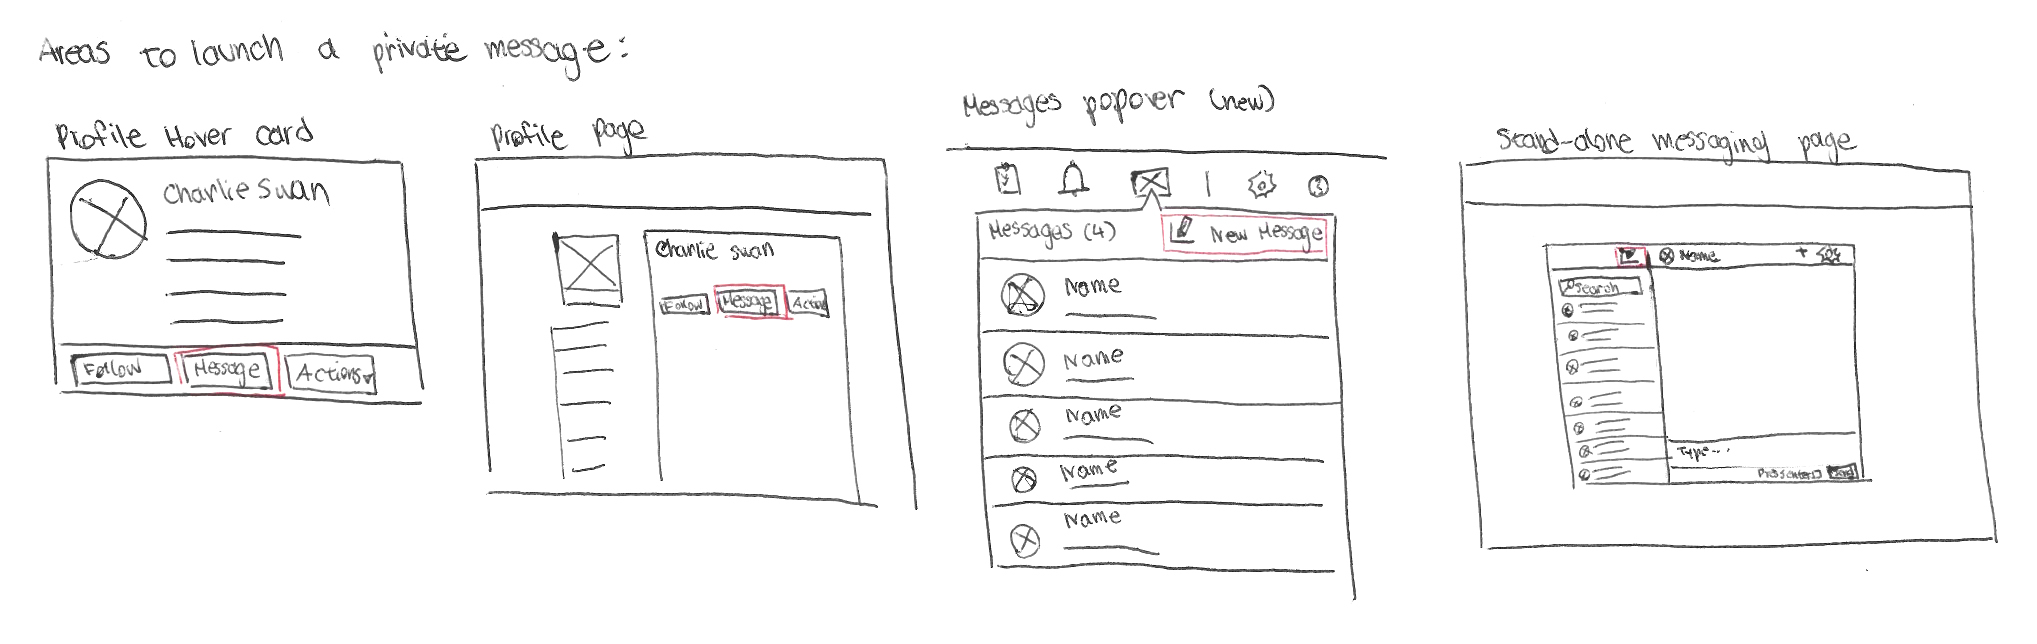 Areas to launch a private message:
Profile Hover card
Charlie Swan
Follow
Message
Actions
Profile page
Charlie swan
Follow
Message
Action
Messages popover (new)
Messages (4)
New Message
Name
Name
Name
Name
Name
Stand-alone messaging page
Name
+
Search
Type...
Press enter
Send